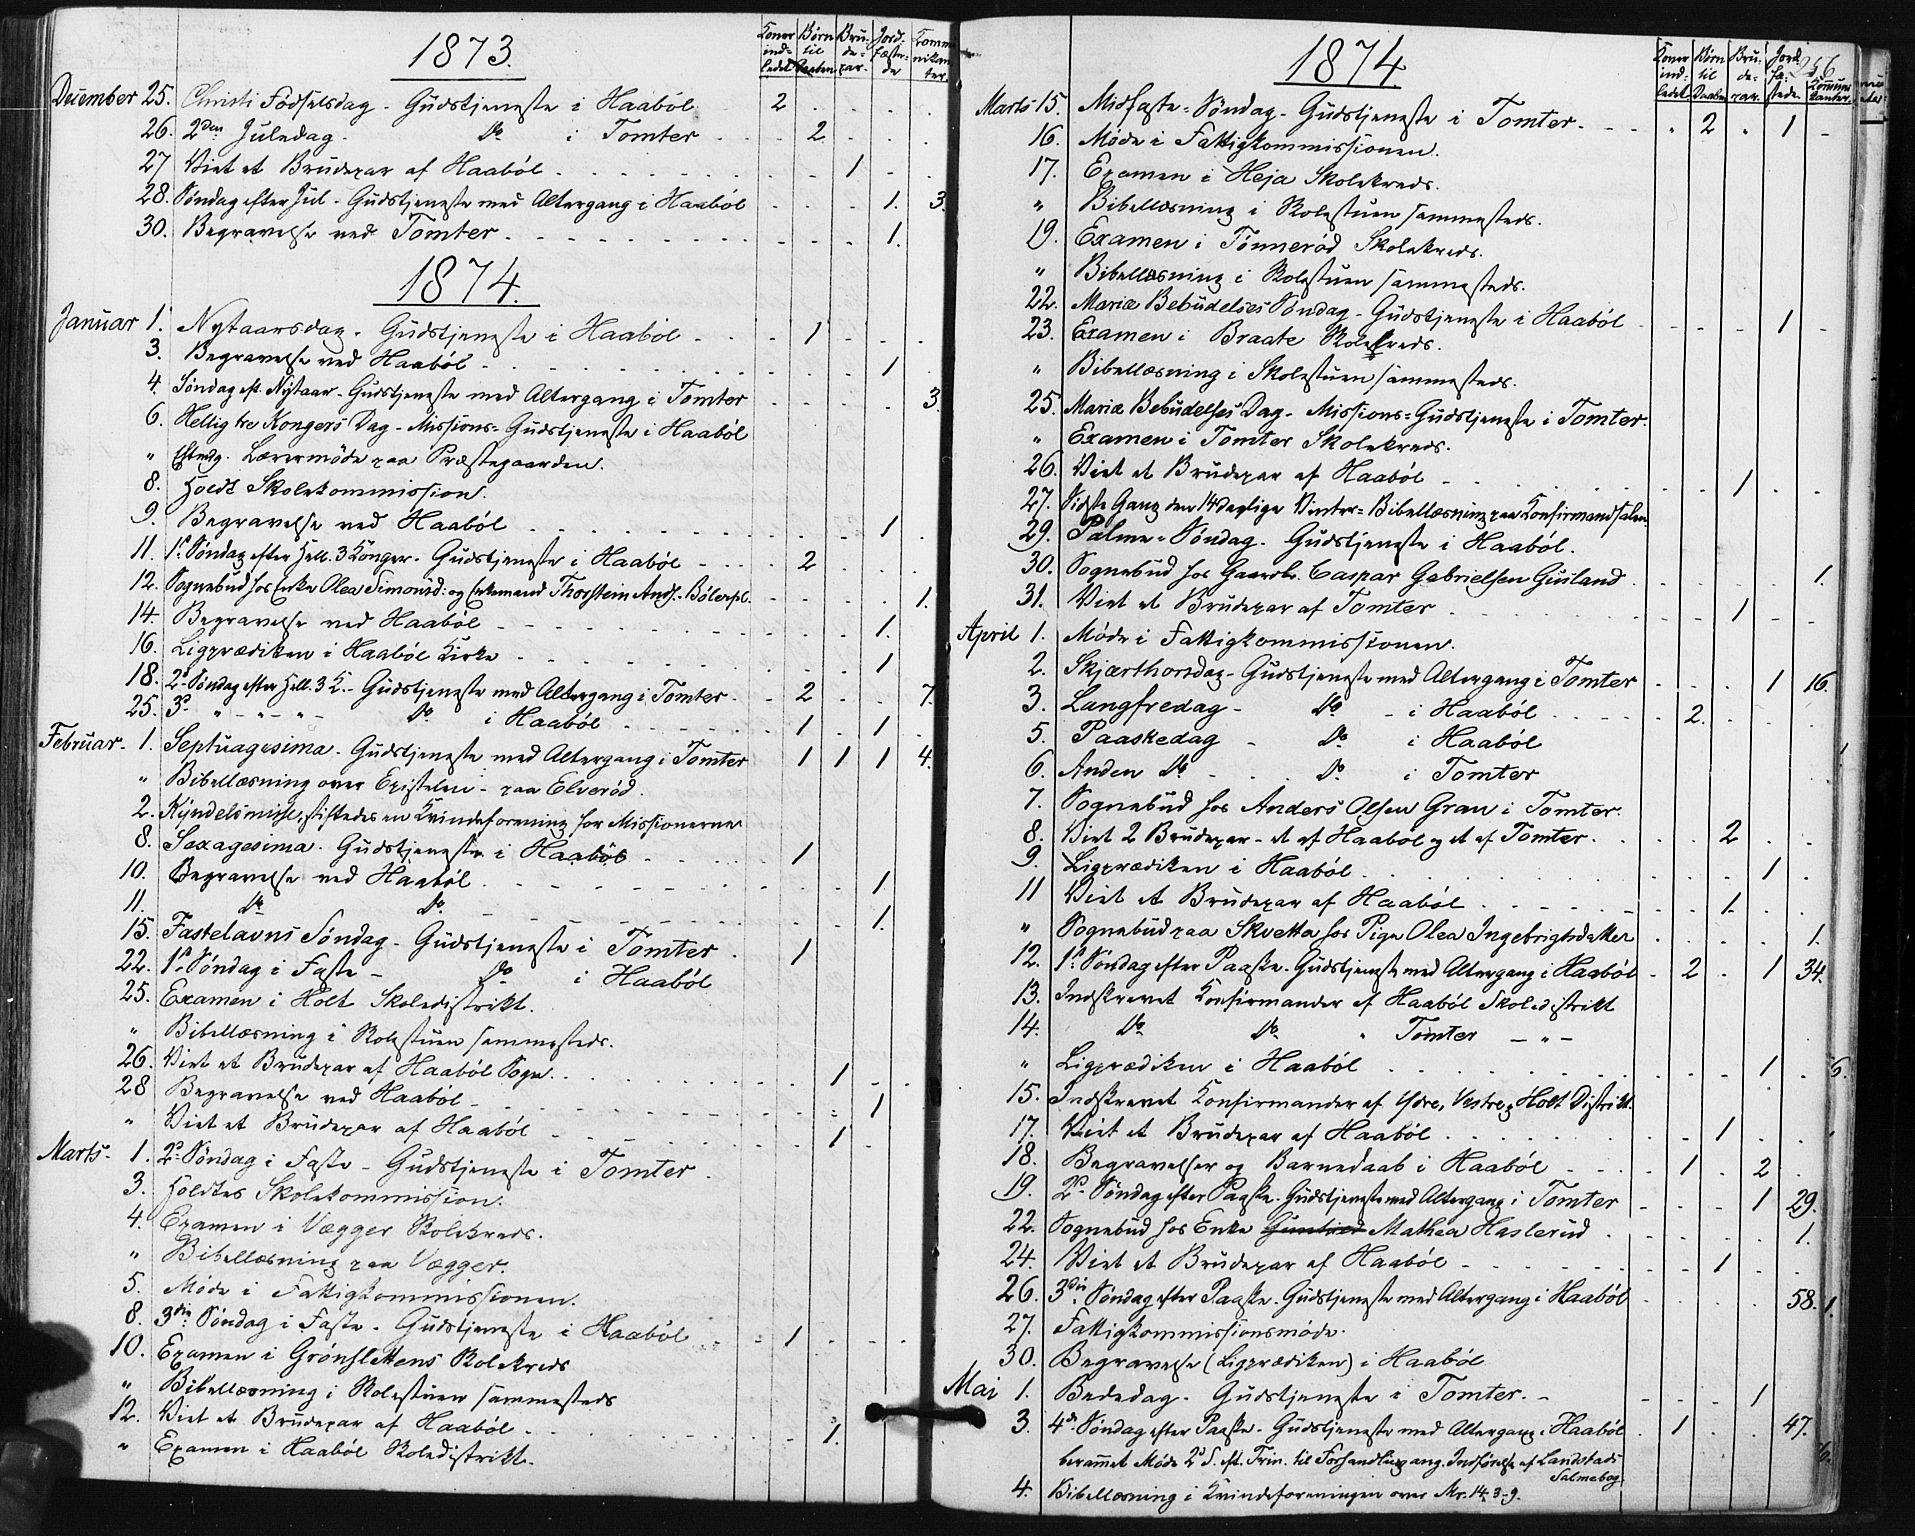 1873.
Koner ind- ledet | Børn til Daaben | Bru- de- par. | Jord- fæste- de | Kommu- nikan- ter.
December 25. Christi Fødselsdag - Gudstjeneste i Haabøl 2 . . . .
26. 2den Juledag. Do i Tomter . . 2 . . .
27 Viet et Brudepar af Haabøl . . . 1 . .
28. Søndag efter Jul - Gudstjeneste med Altergang i Haabøl - - - 1. 3.
30. Begravelse ved Tomter . - - - - 1.
1874.
Januar 1. Nytaarsdag. Gudstjeneste i Haabøl - - . 1 . . .
3. Begravelse ved Haabøl - - - . . 1 .
4. Søndag eft. Nytaar - Gudstjeneste med Altergang i Tomter - . . . 3.
6. Hellig tre Kongers Dag - Missions=Gudstjeneste i Haabøl
" Eftmdg. Lærermøde paa Præstegaarden.
8. Holdt Skolekommission.
9. Begravelse ved Haabøl . . . . 1 .
11. 1s Søndag efter Hell. 3 Konger - Gudstjeneste i Haabøl - - - 2 . . .
12. Sognebud hos Enke Olea Simonsd: og Enkemand Thorstein Ands. Bølerpl. - . . . 1.
14. Begravelse ved Haabøl - - - - 1.
16. Ligprædiken i Haabøl Kirke - - . . 1
18. 2s Søndag efter Hell. 3 K. - Gudstjeneste med Altergang i Tomter - . 2 . . 7.
25. 3s " - " - " - Do i Haabøl . . 1 . 1 .
Februar - 1. Septuagesima - Gudstjeneste med Altergang i Tomter 1 1 1 4.
" Bibellæsning over Epistelen - paa Elverød.
2. Kyndelsmisse, stiftedes en Kvindeforening for Missionerne
8. Sexagesima. Gudstjeneste i Haabøl - . . 1
10. Begravelse ved Haabøl . - - - - 1
11. Do Do - - - . . 1.
15. Fastelavns Søndag - Gudstjeneste i Tomter . 1
22. 1s Søndag i Faste - Do i Haabøl
25. Examen i Holt Skoledistrikt.
" Bibellæsning i Skolestuen sammesteds.
26. Viet et Brudepar af Haabøl Sogn. . . . 1 . .
28 Begravelse ved Haabøl - - - - - 1
" Viet et Brudepar af Haabøl - - - . 1 - .
Marts - 1. 2s Søndag i Faste - Gudstjeneste i Tomter .
3. Holdtes Skolekommission.
4. Examen i Vægger Skolekreds.
" Bibellæsning paa Vægger.
5. Møde i Fattigkommissionen.
8. 3die Søndag i Faste - Gudstjeneste i Haabøl - - 1 . . .
10. Examen i Grønslettens Skolekreds
" Bibellæsning i Skolestuen sammesteds
12. Viet et Brudepar af Haabøl - . . . 1. . .
" Examen i Haabøl Skoledistrikt.
1874.
Koner ind- ledet | Børn til Daaben | Bru- de- par. | Jord- fæ- stede. | Kommu- nikanter.
Marts 15. Midfaste=Søndag - Gudstjeneste i Tomter. - - " 2 " 1 -
16. Møde i Fattigkommissionen.
17. Examen i Heja Skolekreds.
" Bibellæsning i Skolestuen sammesteds.
19. Examen i Tønnerød Skolekreds.
" Bibellæsning i Skolestuen sammesteds.
22. Mariæ Bebudelses Søndag - Gudstjeneste i Haabøl - - - 1 -
23. Examen i Braate Skolekreds.
" Bibellæsning i Skolestuen sammesteds.
25. Mariæ Bebudelses Dag - Missions=Gudstjeneste i Tomter.
" Examen i Tomter Skolekreds.
26. Viet et Brudepar af Haabøl - . . . 1 . .
27. Sidste Gang den 14daglige Vinter=Bibellæsning paa Konfirmandsalen
29. Palme=Søndag. Gudstjeneste i Haabøl.
30. Sognebud hos Gaardbr. Caspar Gabrielsen Guslund . . . . 1.
31. Viet et Brudepar af Tomter . - - - 1 . .
April 1. Møde i Fattigkommissionen.
2. Skjærthorsdag - Gudstjeneste med Altergang i Tomter - . . 1 16.
3. Langfredag - Do - i Haabøl . . . 2.
5. Paaskedag - Do i Haabøl
6. Anden Do - . Do i Tomter
7. Sognebud hos Anders Olsen Gran i Tomter.
8. Viet 2 Brudepar - et af Haabøl og et af Tomter. . . . 2 . .
9. Ligprædiken i Haabøl . . . . 1 .
11 Viet et Brudepar af Haabøl . . - - 1. . .
" Sognebud paa Skvetta hos Pige Olea Ingebrigtsdatter . . . . 1.
12. 1s Søndag efter Paaske - Gudstjeneste med Altergang i Haabøl - 2 . 1 34.
13. Indskrevet Konfirmander af Haabøl Skoledistrikt
14. Do Do " Tomter - " -
" Ligprædiken i Haabøl . . . . 1 .
15. Indskrevet Konfirmander af Ydre, Vestre og Holt Distrikt.
17. Viet et Brudepar af Haabøl . . . . 1 . .
18. Begravelser og Barnedaab i Haabøl - - - 1 . 2 .
19. 2s Søndag efter Paaske - Gudstjeneste med Altergang i Tomter - . . 1 29.
22. Sognebud hos Enke Mathea Haslerud . . . . 1.
24. Viet et Brudepar af Haabøl - . . . 1 . .
26. 3die Søndag efter Paaske - Gudstjeneste med Altergang i Haabøl . . . . 58.
27. Fattigkommissionsmøde.
30. Begravelse (Ligprædiken) i Haabøl
Mai 1. Bededag. Gudstjeneste i Tomter. - - . . 1
3. 4de Søndag efter Paaske - Gudstjeneste med Altergang i Haabøl . 1 . . 47.
berammet Møde 2s S. eft. Trin. til Forhandling ang. Indførelse af Landstads Salmebog.
4. Bibellæsning i Kvindeforeningen over Mr. 14, 3-9.